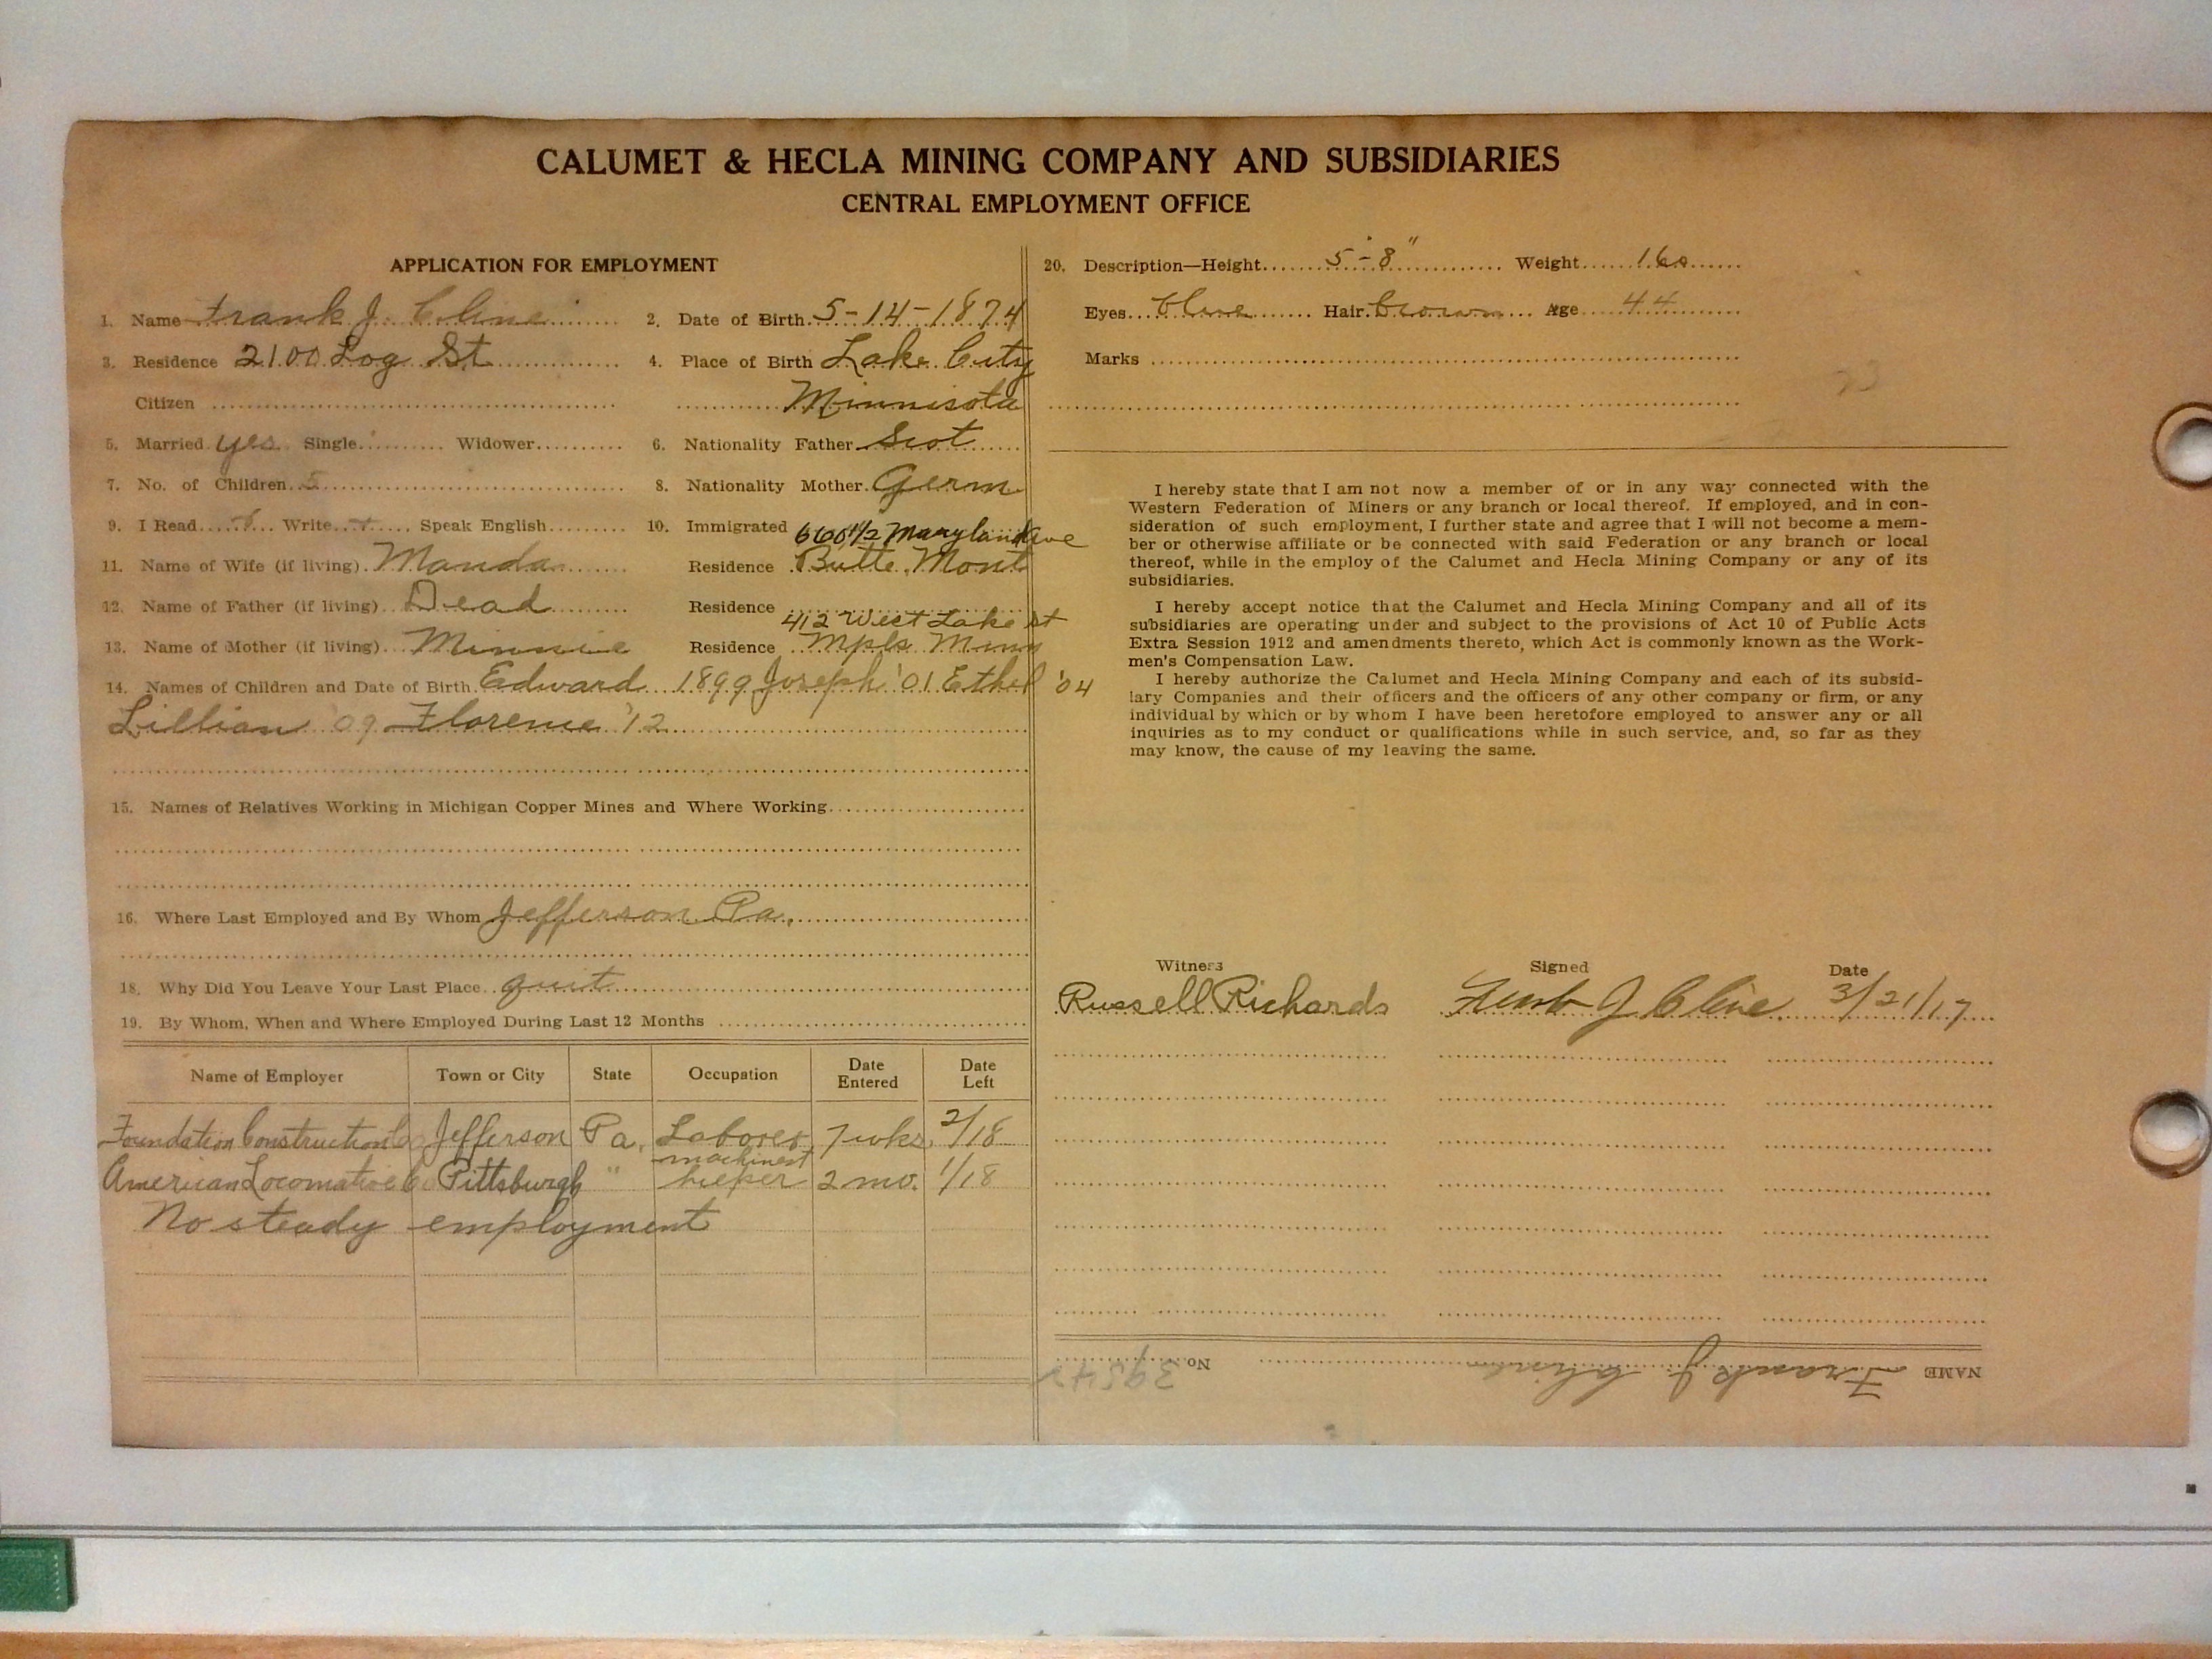 CALUMET & HECLA MINING COMPANY AND SUBSIDIARIES
CENTRAL EMPLOYMENT OFFICE
APPLICATION FOR EMPLOYMENT
1. Name Frank J. Cline
2. Date of Birth 5-14-1874
3. Residence 2100 Log St
4. Place of Birth Lake City
Citizen
Minnisota
5. Married yes Single Widower
6. Nationality Father Scot
7. No. of Children 5
8. Nationality Mother Germ
9. I Read Write Speak English
10. Immigrated
660 1/2 Maryland Ave
11. Name of Wife (if living) Manda
Residence Butte Mont
12. Name of Father (if living) Dead
Residence
412 West Lake st
13. Name of Mother (if living) Minnie
Residence Mpls Minn
14. Names of Children and Date of Birth Edward 1899 Joseph '01 Ethel '04
Lillian '09 Florence '12
15. Names of Relatives Working in Michigan Copper Mines and Where Working
16. Where Last Employed and By Whom Jefferson Pa.
18. Why Did You Leave Your Last Place quit
19. By Whom, When and Where Employed During Last 12 Months
Name of Employer Town or City State Occupation Date Entered Date Left
Foundation Construction Co Jefferson Pa. Laborer 7 wks. 2/18
machinest
American Locomative Co Pittsburgh " helper 2 mo. 1/18
No steady employment
20. Description—Height 5'-8" Weight 160
Eyes blue Hair brown Age 44
Marks
I hereby state that I am not now a member of or in any way connected with the
Western Federation of Miners or any branch or local thereof. If employed, and in con-
sideration of such employment, I further state and agree that I will not become a mem-
ber or otherwise affiliate or be connected with said Federation or any branch or local
thereof, while in the employ of the Calumet and Hecla Mining Company or any of its
subsidiaries.
I hereby accept notice that the Calumet and Hecla Mining Company and all of its
subsidiaries are operating under and subject to the provisions of Act 10 of Public Acts
Extra Session 1912 and amendments thereto, which Act is commonly known as the Work-
men's Compensation Law.
I hereby authorize the Calumet and Hecla Mining Company and each of its subsid-
iary Companies and their officers and the officers of any other company or firm, or any
individual by which or by whom I have been heretofore employed to answer any or all
inquiries as to my conduct or qualifications while in such service, and, so far as they
may know, the cause of my leaving the same.
Witness Signed Date
Russell Richards Frank J Cline 3/21/17
NAME Frank J. Cline No.